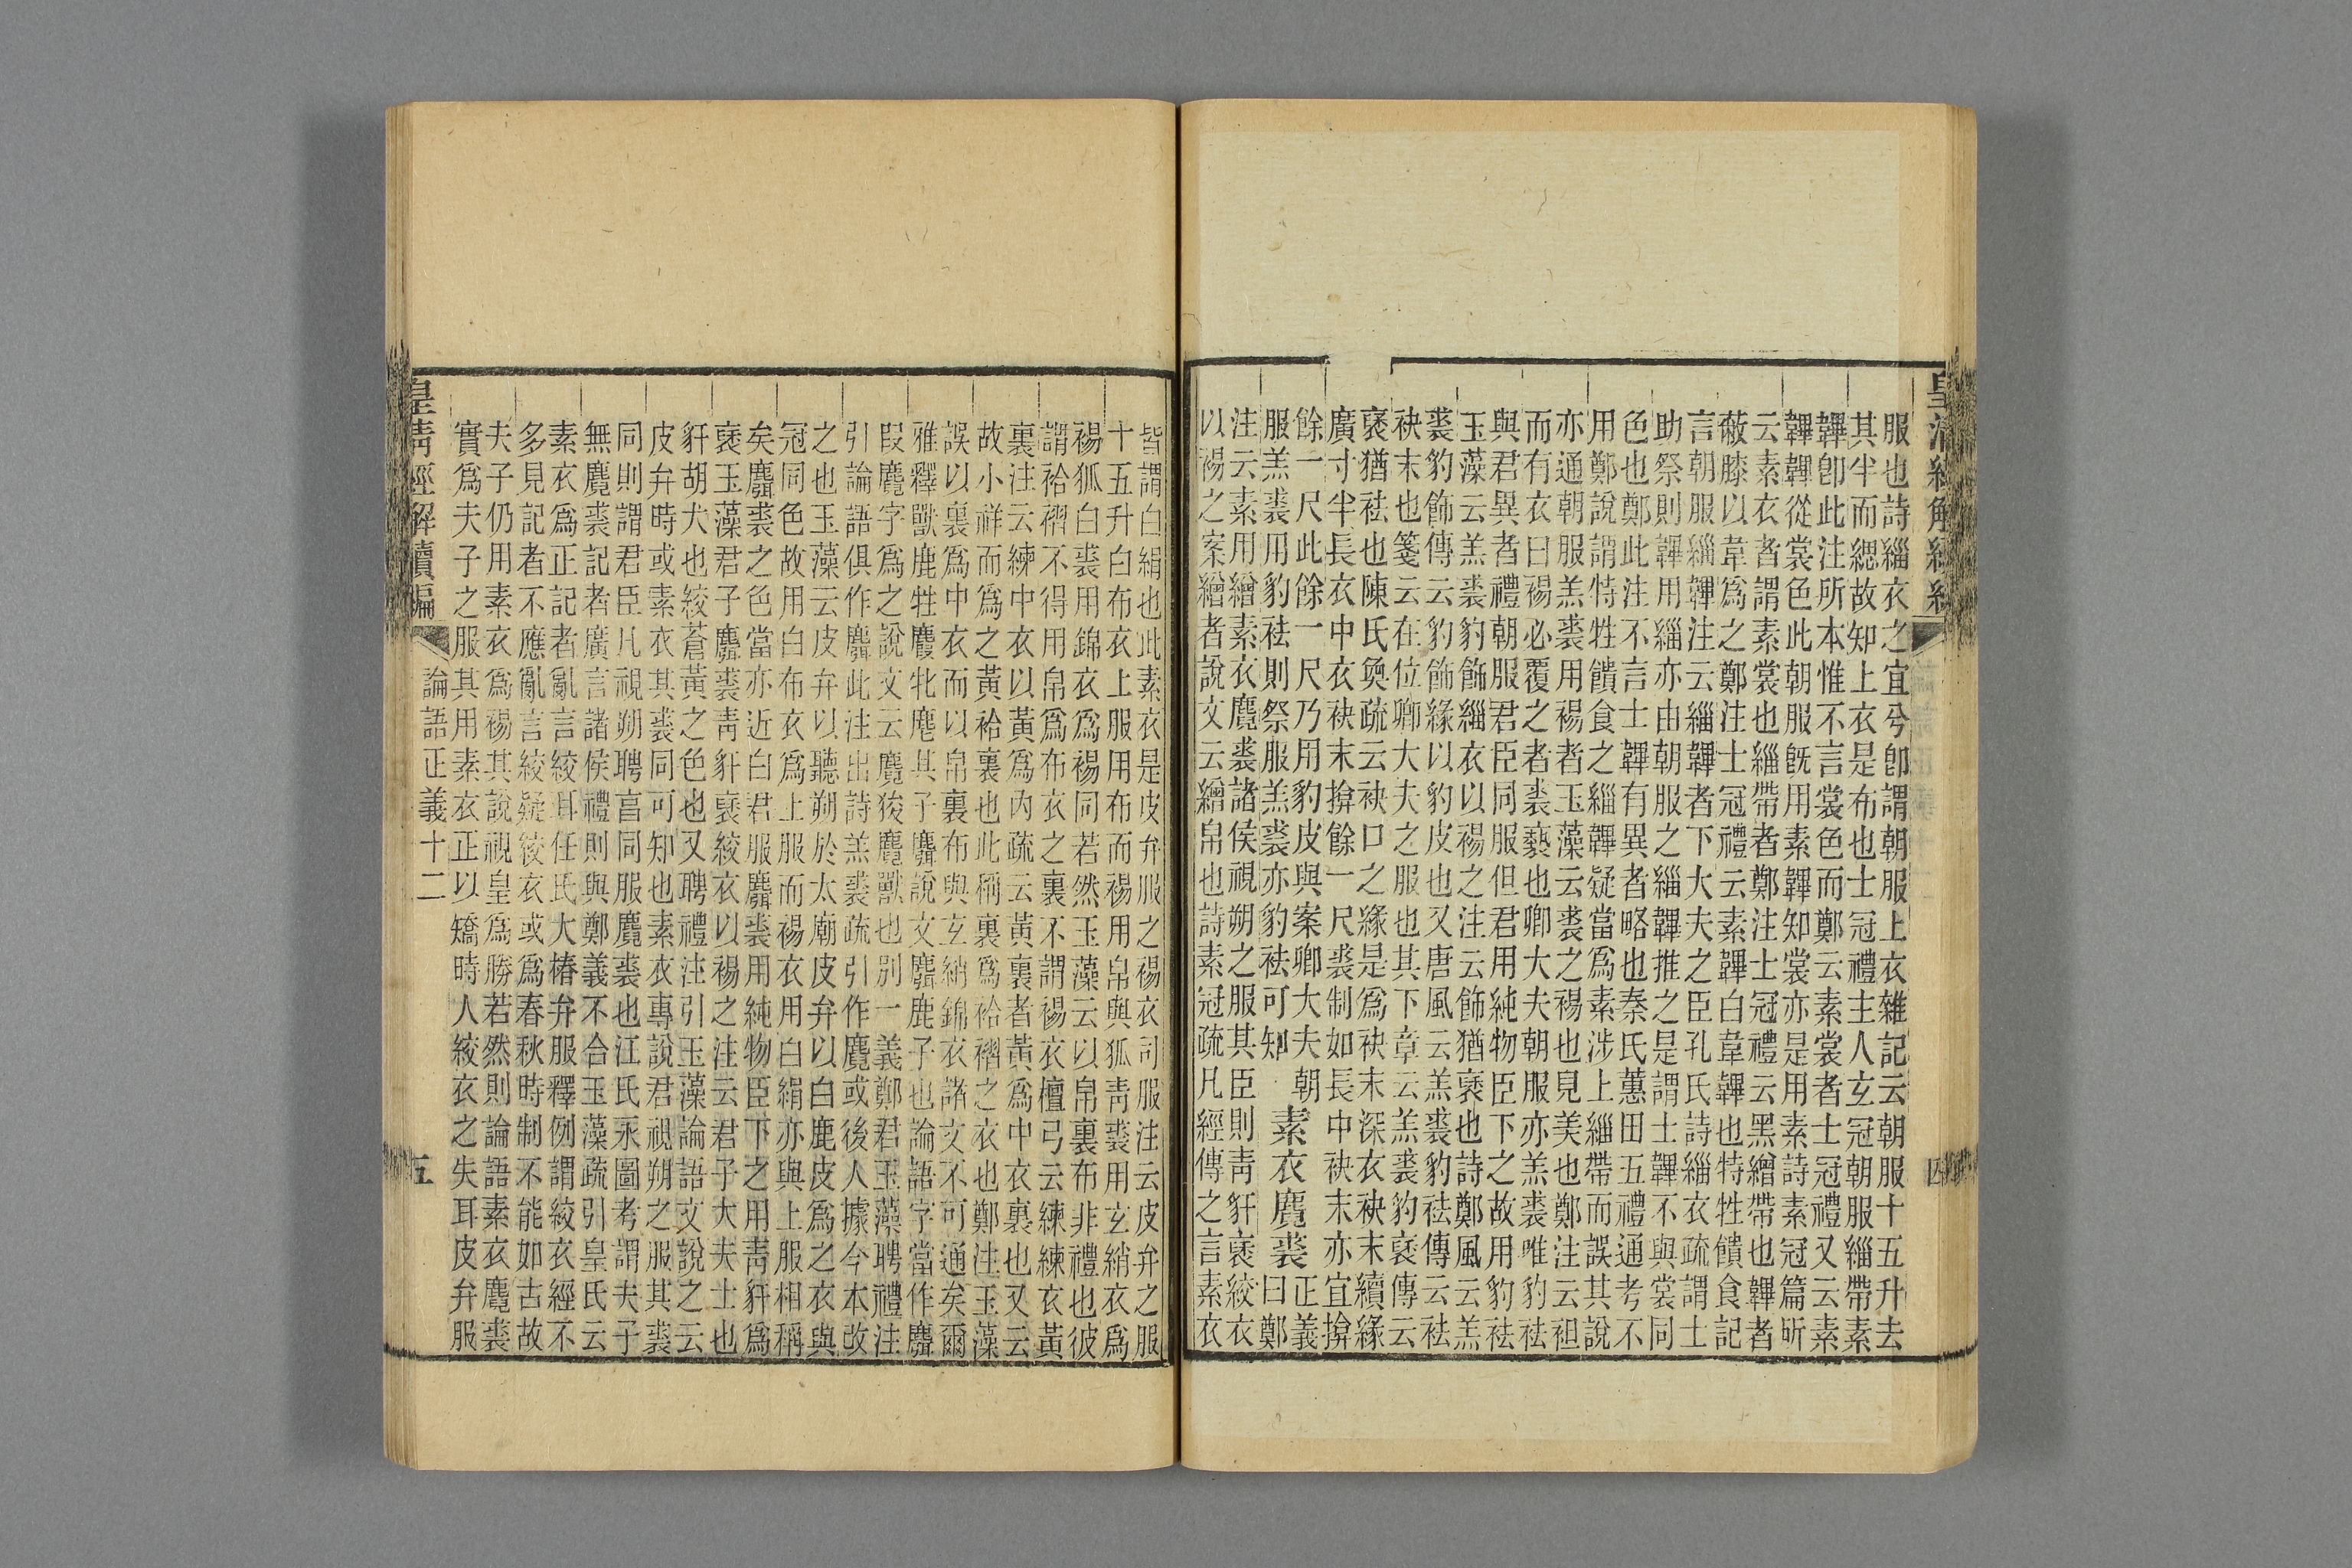 服也詩緇衣之宜兮卽謂朝服上衣雜記云朝服十五升去
其半而緦故知上衣是布也士冠禮主人玄冠朝服緇帶素
韠卽此注所本惟不言裳色而鄭云素裳者士冠禮又云素
韠韠從裳色此朝服旣用素韠知裳亦是用素詩素冠篇昕
云素衣者謂素裳也緇帶者鄭注士冠禮云黑繒帶也韠者
蔽膝以韋爲之鄭注士冠禮云素韠白韋韠也特牲饋食記
言朝服緇韠注云緇韠者下大夫之臣孔氏詩緇衣疏謂士
助祭則韠用緇亦由朝服之緇韠推之是謂士韠不與裳同
色也鄭此注不言士韠有異者略也秦氏蕙田五禮通考不
用鄭說謂特牲饋食之緇韠疑當爲素涉上緇帶而誤其說
亦通朝服羔裘用裼者玉藻云裘之裼也見美也鄭注云袒
而有衣曰裼必覆之者裘褻也卿大夫朝服亦羔裘唯豹袪
與君異者禮朝服君臣同服但君用純物臣下之故用豹袪
玉藻云羔裘豹飾緇衣以裼之注云飾猶褎也詩鄭風云羔
裘豹飾傳云豹飾緣以豹皮也又唐風云羔裘豹袪傳云袪
袂末也箋云在位卿大夫之服也其下章云羔裘豹褎傳云
褎猶袪也陳氏奐疏云袂口之緣是爲袂末深衣袂末續緣
廣寸半長衣中衣袂末揜餘一尺裘制如長中袂末亦宜揜
餘一尺此餘一尺乃用豹皮與案卿大夫朝
服羔裘用豹袪則祭服羔裘亦豹袪可知
素衣麑裘
正義
曰鄭
注云素用繒素衣麑裘諸侯視朔之服其臣則靑豻褎絞衣
以裼之案繒者說文云繒帛也詩素冠疏凡經傳之言素衣
皆謂白絹也此素衣是皮弁服之裼衣司服注云皮弁之服
十五升白布衣上服用布而裼用帛與狐靑裘用玄綃衣爲
裼狐白裘用錦衣爲裼同若然玉藻云以帛裏布非禮也彼
謂袷褶不得用帛爲布衣之裏不謂裼衣檀弓云練練衣黃
裏注云練中衣以黃爲內疏云黃裏者黃爲中衣裏也又云
故小祥而爲之黃袷裏也此稱裏爲袷褶之衣也鄭注玉藻
誤以裏爲中衣而以帛裏布與玄綃錦衣諸文不可通矣爾
雅釋獸鹿牡麚牝麀其子麛說文麛鹿子也論語字當作麛
叚麑字爲之說文云麑狻麑獸也別一義鄭君玉藻聘禮注
引論語俱作麛此注出詩羔裘疏引作麑或後人據今本改
之也玉藻云皮弁以聽朔於太廟皮弁以白鹿皮爲之衣與
冠同色故用白布衣爲上服而裼衣用白絹亦與上服相稱
矣麛裘之色當亦近白君服麛裘用純物臣下之用靑豻爲
褎玉藻君子麛裘靑豻褎絞衣以裼之注云君子大夫士也
豻胡犬也絞蒼黃之色也又聘禮注引玉藻論語文說之云
皮弁時或素衣其裘同可知也素衣專說君視朔之服其裘
同則謂君臣凡視朔聘享同服麑裘也江氏永圖考謂夫子
無麑裘記者廣言諸侯禮則與鄭義不合玉藻疏引皇氏云
素衣爲正記者亂言絞耳任氏大椿弁服釋例謂絞衣經不
多見記者不應亂言絞疑絞衣或爲春秋時制不能如古故
夫子仍用素衣爲裼其說視皇爲勝若然則論語素衣麑裘
實爲夫子之服其用素衣正以矯時人絞衣之失耳皮弁服
皇淸經解續編
論語正義十二
五